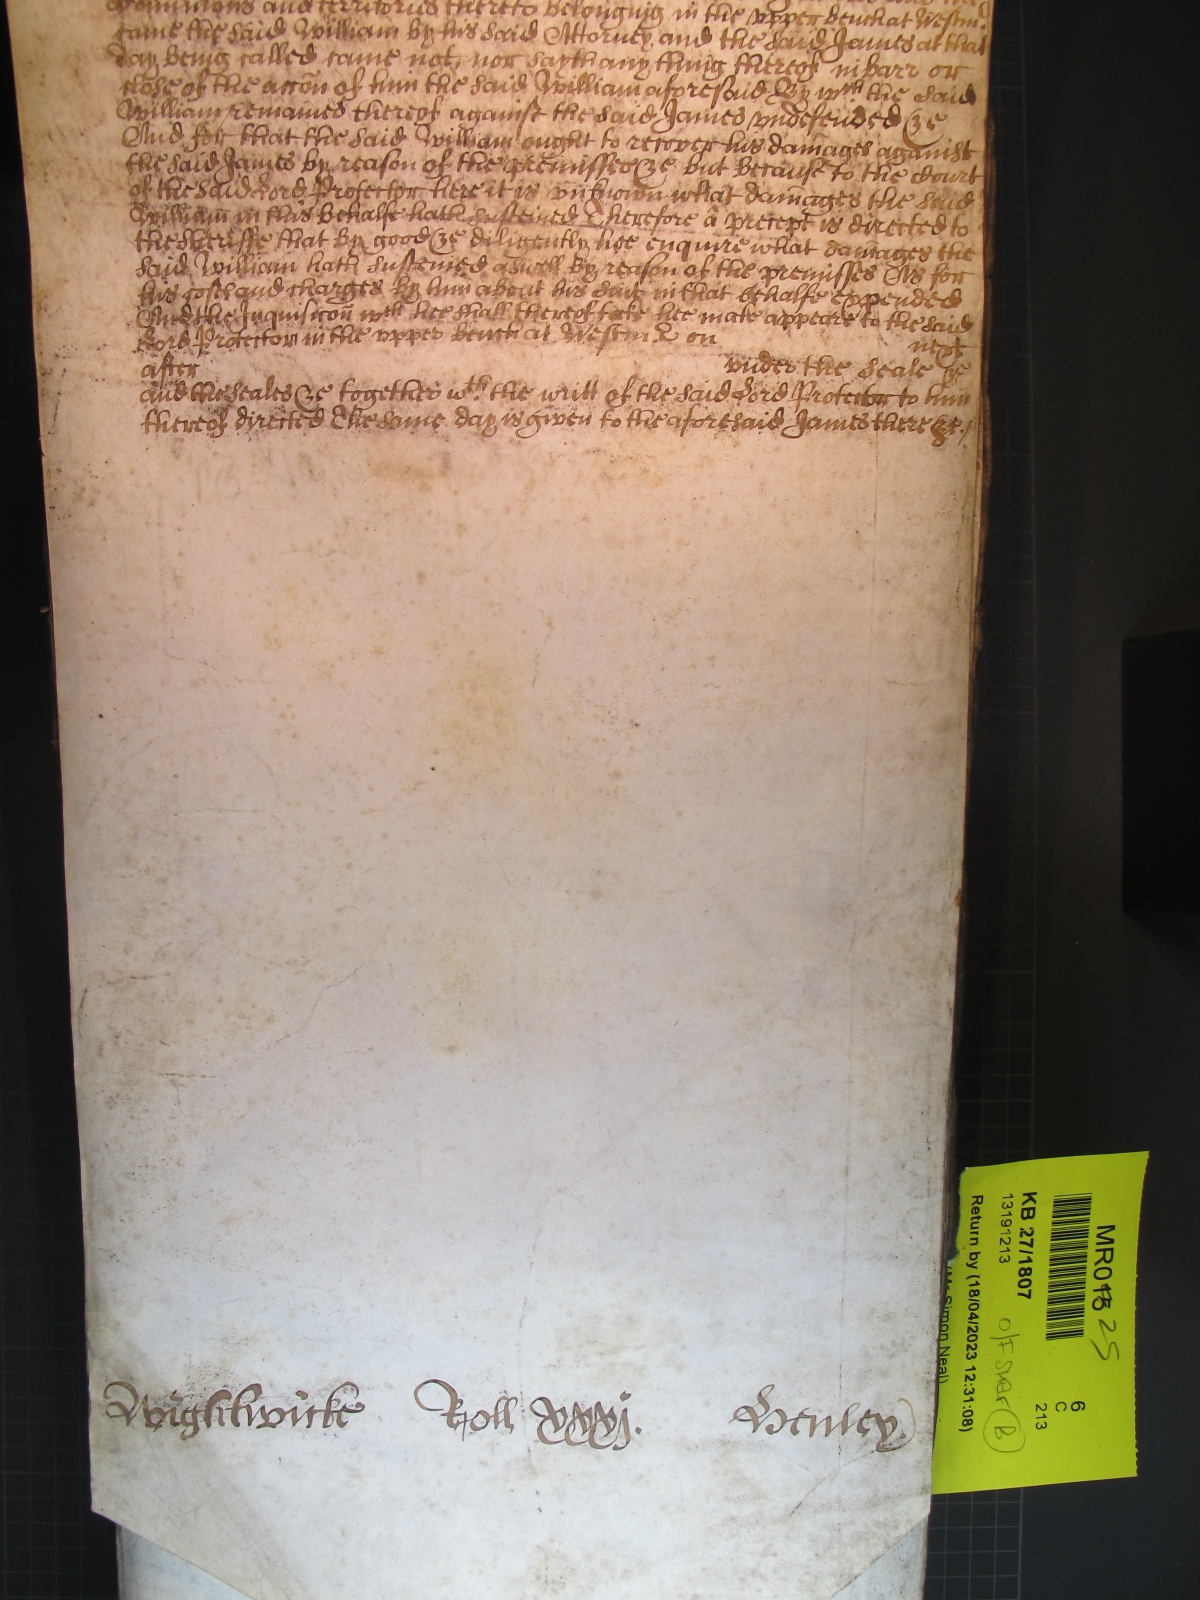 dominions and territories thereto belonging in the upper bench at Westm
came the said William by his said Attorney and the said James at that
day being called came not, nor sayth any thing thereof in barr or
of the accon of him the said William aforesaid By wch the said
William remaines thereof against the said James undefended &c
And for that the said William ought to recover his damages against
the said James by reason of the premisses &c but because to the Court
of the said Lord Protector here it is unknown what damages the said
William in this behalfe hath susteined Therefore a precept is directed to
the Sheriffe that by good &c diligently hee enquire what damages the
said William hath susteined aswell by reason of the premisses As for
his costs and charges by him about his suit in that behalfe expended
And the Inquisicon wch hee shall thereof take hee make appeare to the said
Lord Protector in the upper bench at Westm on next
after under the seale &c
and the seales &c together wth the writt of the said Lord Protector to him
thereof directed The same day is given to the aforesaid James there &c.
Wightwicke Roll xxxj. Henley.
MR01 25
6
C
213
KB 27/1807
13191213
O/F SMAR B
Return by (18/04/2023 12:31:08)
(Mr Simon Neal)